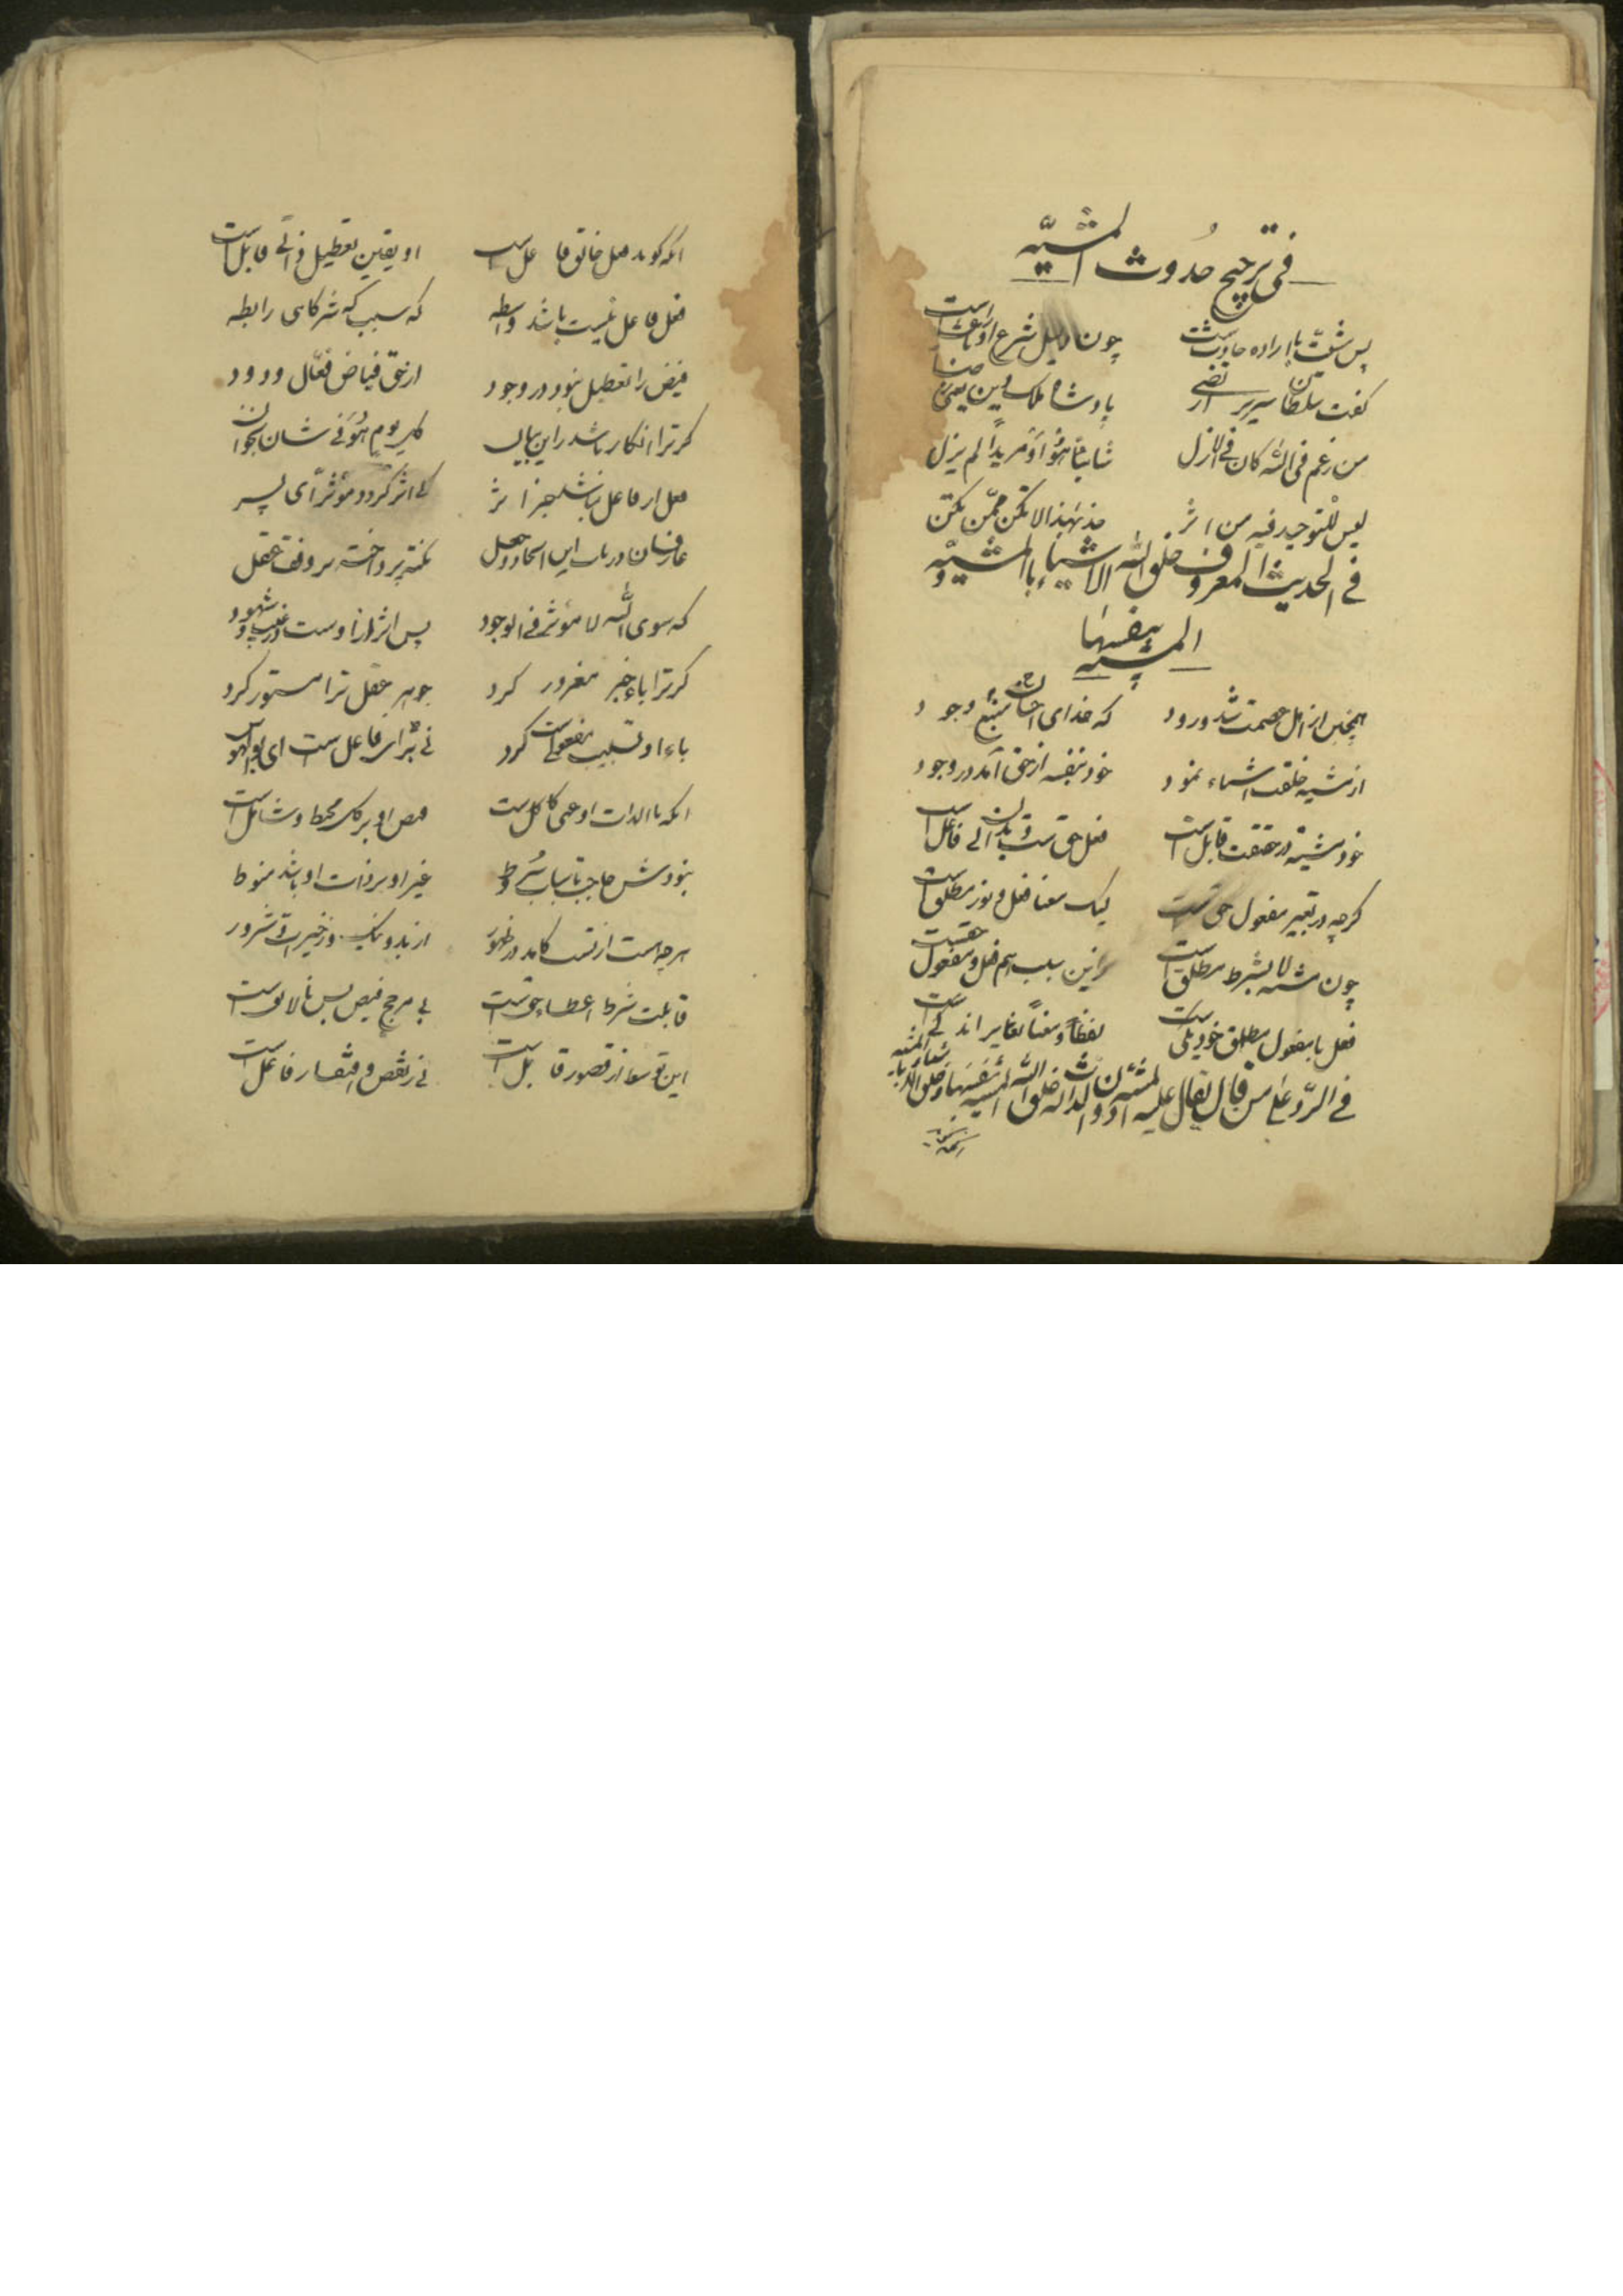 في ترجيح حدوث المشيّة
پس مشیّت با اراده حادث است چون دلیل شرع او را باعث است
گفت سلطان سریر ارتضی پادشاه ملک دین یعنی رضا
من زعم في الله كان في الازل شائياً هو أو مريداً لم يزل
ليس للتوحيد فيه من اثر مذ بهذا لا تكن ممّن
في الحديث المعروف خلق الله الاشياء بالمشيّة و
المشية بنفسها
همچنین از اهل عصمت شد ورود که خدای منبع وجود
از مشیه خلقت اشیاء نمود خود بنفسه از حق آمد در وجود
خود مشیّه در حقیقت قابل است فعل حق است و فاعل است
گرچه در تعبیر مفعول حق است لیک معنا فعل و نور مطلق است
چون مشیه لا بشرط مطلق است زین سبب هم فعل و مفعول حق است
فعل با مفعول مطلق خود یکی است لفظاً و معناً تغایر اندکی است
في الردّ على من قال خلق الله المشية بنفسها
آنکه گوید فعل خالق فاعل است او یقین تعطیل ذاتی قابل است
فعل فاعل نیست باشد واسطه که سبب که شرط کاهی رابطه
فیض را تعطیل نبود در وجود از حق فیاض فعّال ودود
گر ترا انکار باشد زاین بیان کل یوم هو في شان بخوان
فعل از فاعل نباشد جز اثر کی اثر گردد مؤثر ای پسر
عارفان در باب این ایجاد و جعل نکته پرداخته بر وفق عقل
که سوی الله لا مؤثر في الوجود پس اثرها زاوست در غیب و شهود
گر ترا باء خبر مغرور کرد جوهر عقل ترا مستور کرد
باء او تسبیب مفعولیت کرد نی برای فاعل است ای بوالهوس
آنکه با الذات او غنی کامل است فیض او بر کل محیط و شامل است
نبودش حاجت باسباب و شروط غیر او بر ذات او باشد منوط
هر چه هست از تست کامد در ظهور از بد و نیک و ز خیرات و شرور
قابلیت شرط اعطاء حق است بی مرجح فیض بس نالایق است
این توسط از قصور قابل است نی ز نقص و افتقار فاعل است